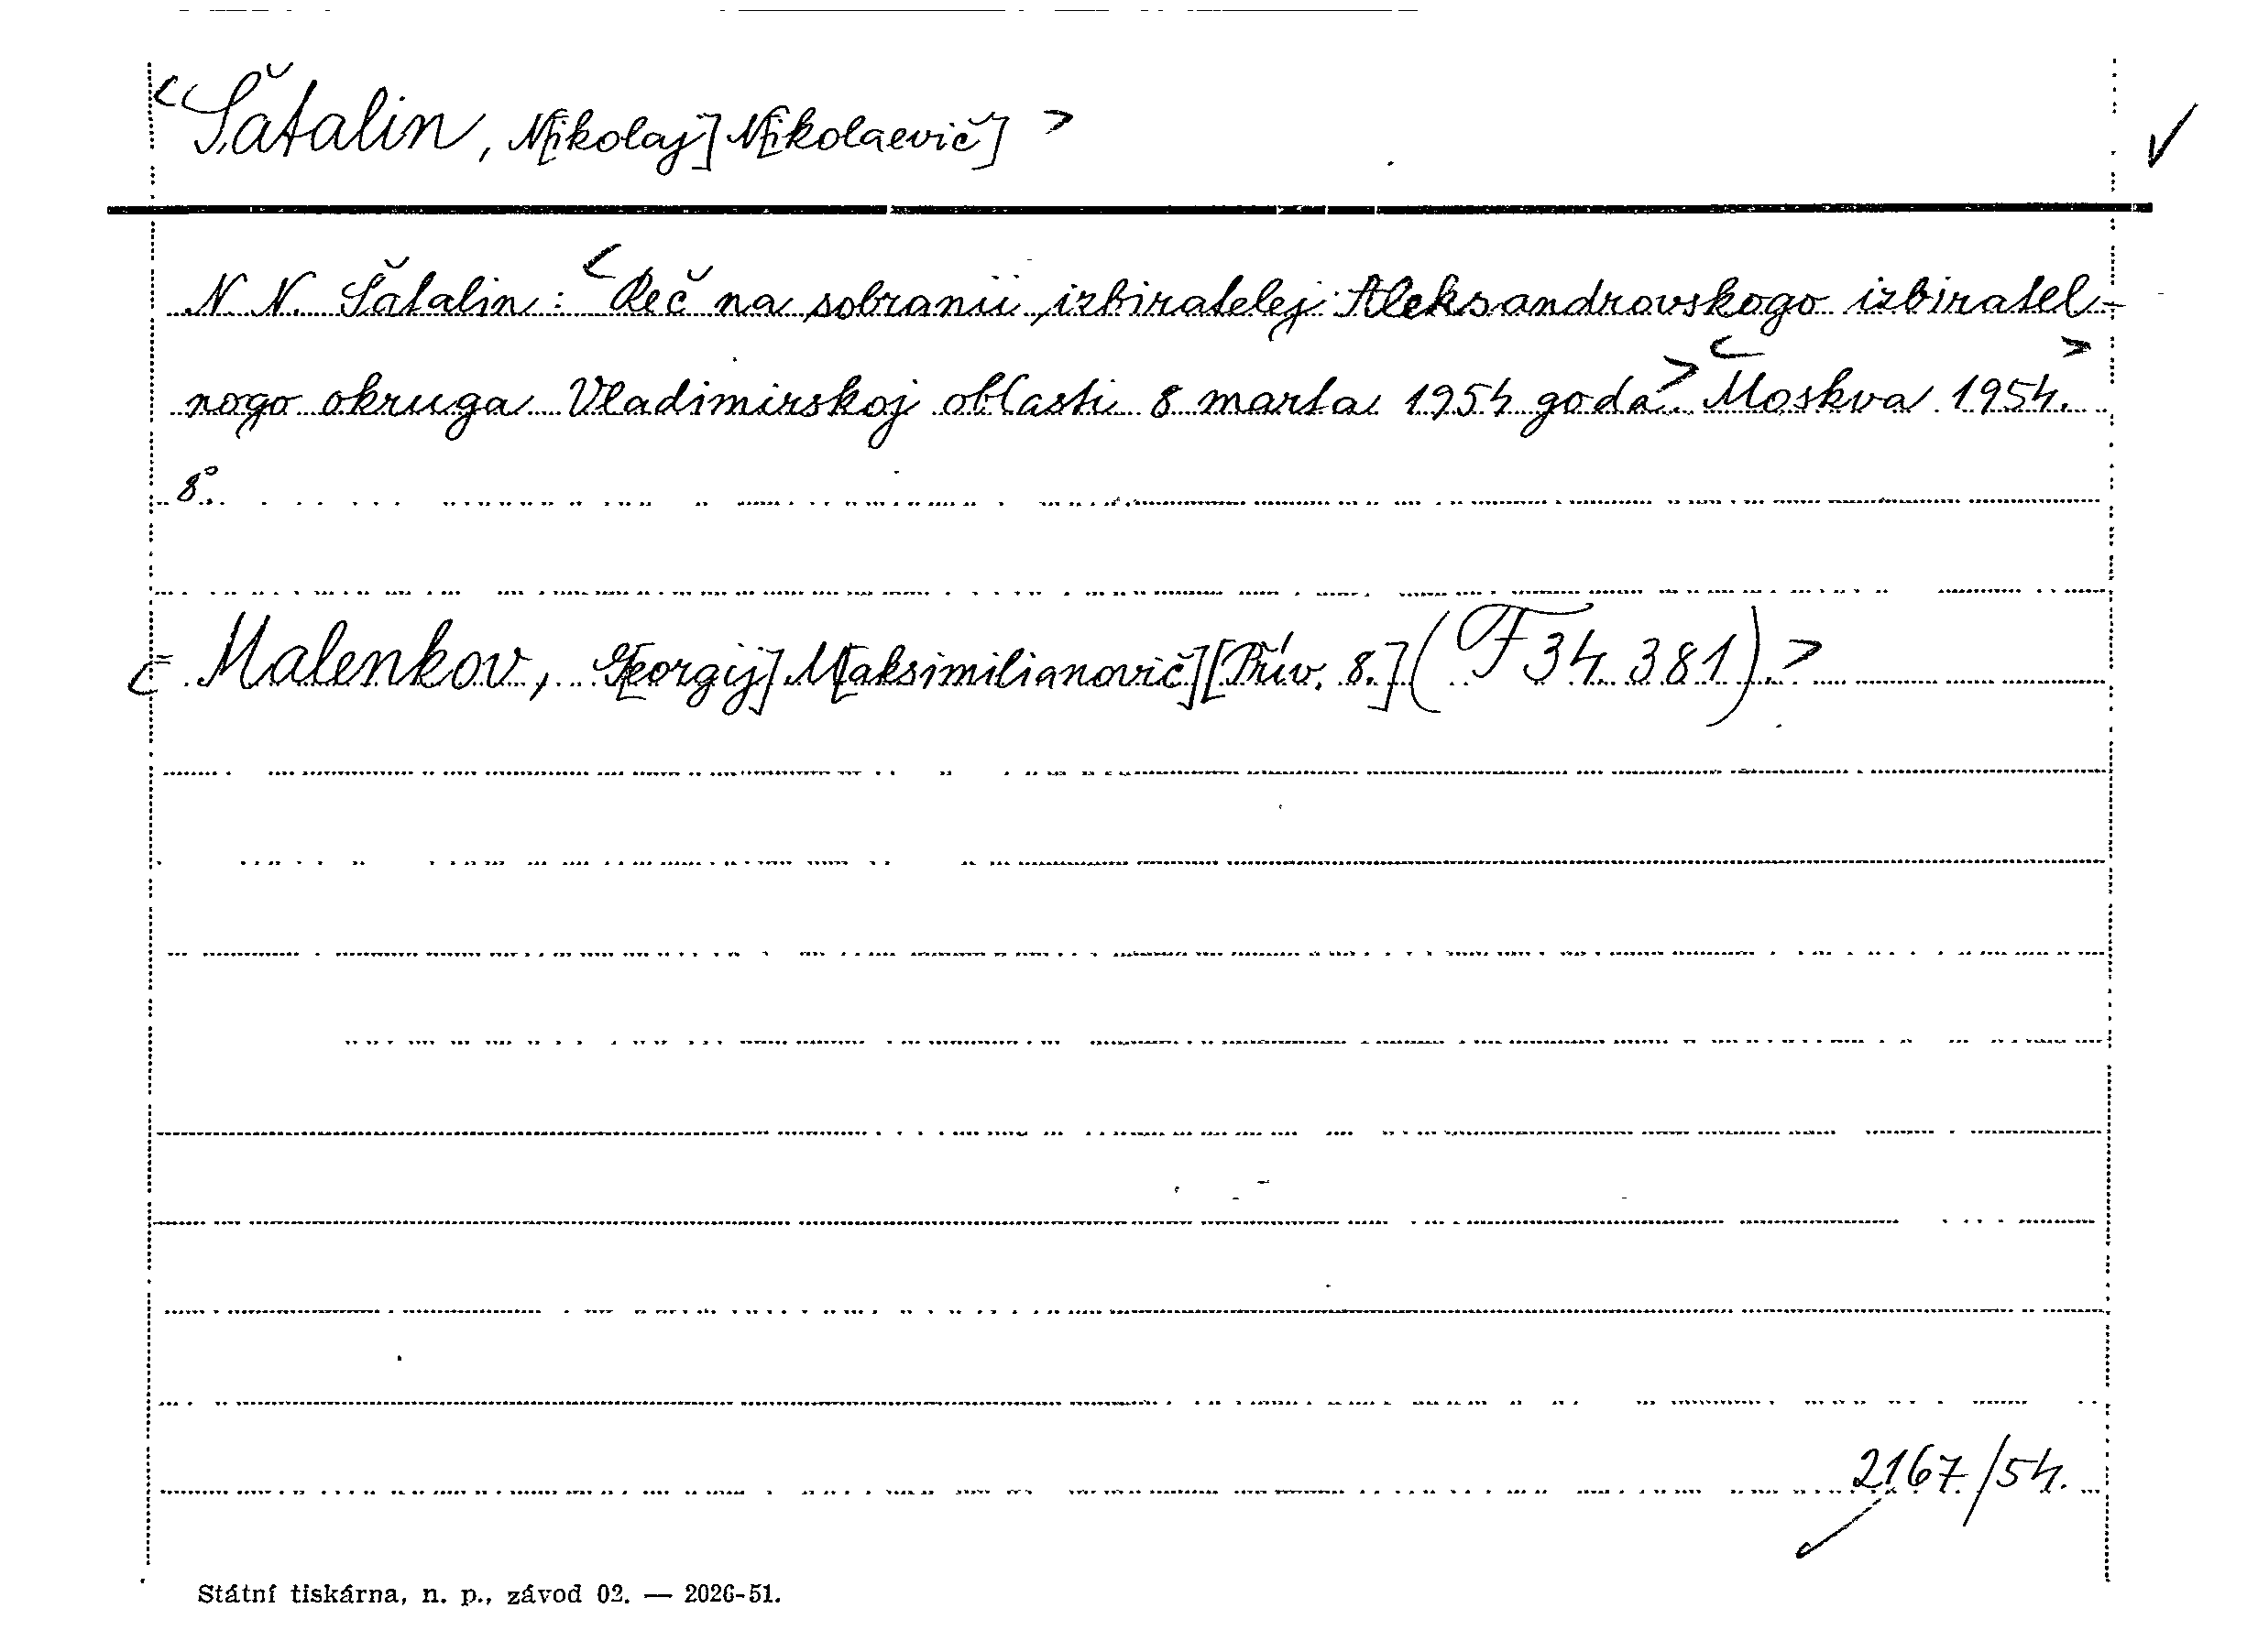 <Šatalin, N[ikolaj] N[ikolaevič]>
N. N. Šatalin: <Reč na sobranii izbiratelej Aleksandrovskogo izbiratel-
nogo okruga Vladimirskoj oblasti 8 marta 1954 goda>. <Moskva 1954.>
8°.
<Malenkov, G[eorgij] M[aksimilianovič] [Přív. 8.] (F 34 381).>
2167/54.
Státní tiskárna, n. p., závod 02. — 2026-51.